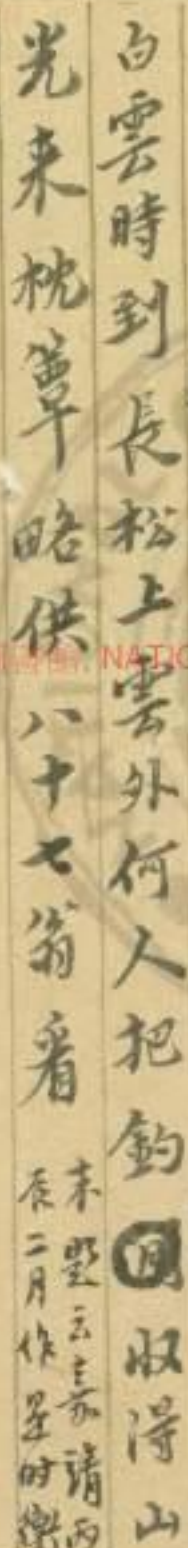 白雲時到長松上雲外何人把釣收得山
光来枕簟略供八十七翁看
末題云嘉靖丙
辰二月作是时樂
NATIO